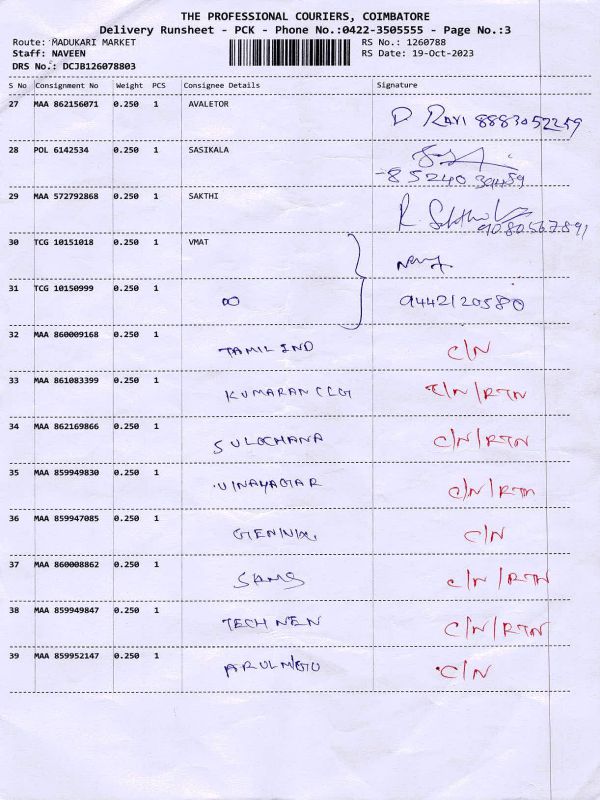 THE PROFESSIONAL COURIERS, COIMBATORE
Delivery Runsheet - PCK - Phone No.:0422-3505555 - Page No.:3
Route: MADUKARI MARKET RS No.: 1260788
Staff: NAVEEN RS Date: 19-Oct-2023
DRS No.: DCJB126078803
S No Consignment No Weight PCS Consignee Details Signature
27 MAA 862156071 0.250 1 AVALETOR D RAVI 8883052259
28 POL 6142534 0.250 1 SASIKALA
29 MAA 572792868 0.250 1 SAKTHI
30 TCG 10151018 0.250 1 VMAT
31 TCG 10150999 0.250 1 9442120580
32 MAA 860009168 0.250 1 TAMIL IND C/N
33 MAA 861083399 0.250 1 KUMARAN C/N/RTN
34 MAA 862169866 0.250 1 SULOCHANA C/N/RTN
35 MAA 859949830 0.250 1 VINAYAGAR C/N/RTN
36 MAA 859947085 0.250 1 C/N
37 MAA 860008862 0.250 1 SAMS C/N/RTN
38 MAA 859949847 0.250 1 TECH NEN C/N/RTN
39 MAA 859952147 0.250 1 C/N